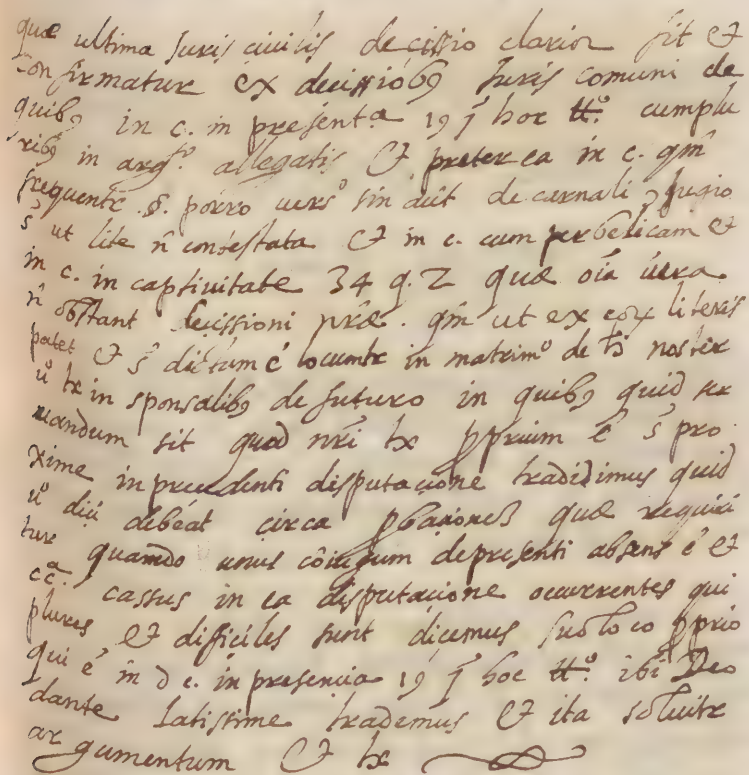 quæ ultima Juris ciuilis decissio clarior fit et
confirmatur ex decissiōbꝯ Juris comuni de
quibꝯ in c. in presenta 19 j hoc ttº. cumplu
ribꝯ in argtº. allegatis et preterea in c. qm̄
frequentr .§. porro uersº sin aūt de carnali
ut lite n̄ contestata et in c. cum per belicam et
in c. in captiuitate 34 q. 2 quæ oīa uera
n̄ obstant decissioni præ . qm̄ ut ex eoꝝ literis
patet et s̄ dictum ē locuntr in matrimº de nostr
uº tx in sponsalibꝯ de futuro in quibꝯ quid ser
uandum sit quod nr̄i tx ꝓprium ē s̄ pro
xime in precedenti disputacione tradidimus quid
uº dici debeat circa ꝓbaciones quæ requiri
tur quando unus cōiugum de presenti absens ē et
cca. cassus in ea disputacione occurrentes qui
plures et dificiles sunt dicemus suo loco ꝓprio
qui ē in d c. in presencia 19 j hoc ttº. ibi Deo
dante latissime trademus et ita soluitr
argumentum et tx